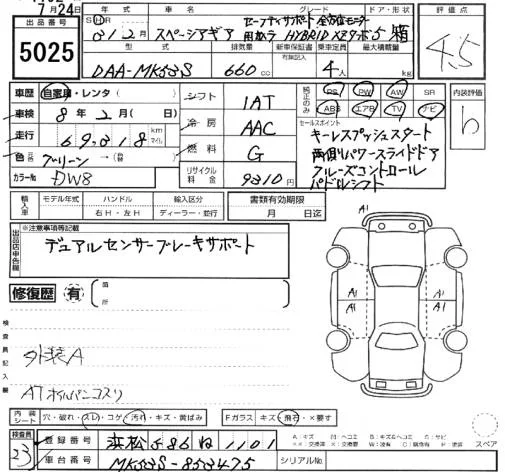 7月24日
出品番号
5025
年式 車名 グレード ドア・形状 評価点
S H R 31年2月 スペーシアギア セーフティサポート 全方位モニター用カメラ HYBRID XZターボ 5 箱 4.5
型式 排気量 新車保証書 乗車定員 最大積載量
DAA-MK53S 660cc 有無記入 4人 kg
車歴 自家用・レンタ( )
車検 8年2月(日)
走行 69,318 km マイル
色 グリーン→(替)
カラーNo DW8
シフト 1AT
冷房 AAC
燃料 G
リサイクル料金 9310円
純正のみ PS PW AW SR
ABS エアB TV ナビ
内装評価 b
セールスポイント
キーレスプッシュスタート
両側パワースライドドア
クルーズコントロール
パドルシフト
輸入車 モデル年式 ハンドル 輸入区分 書類有効期限
年 右H・左H ディーラー・並行 月 日迄
出品店申告欄 ※注意事項等記載
デュアルセンサーブレーキサポート
修復歴 有 箇所
検査員記入欄
外装A
ATオイルパンコスリ
A1
A1 A1
A1 A1
内装シート 穴・破れ・スレ・コゲ・汚れ・キズ・黄ばみ Fガラス キズ・飛石・×要す
検査員 33
登録番号 浜松586ね1101
車台番号 MK53S-853475 シリアルNo
スペア